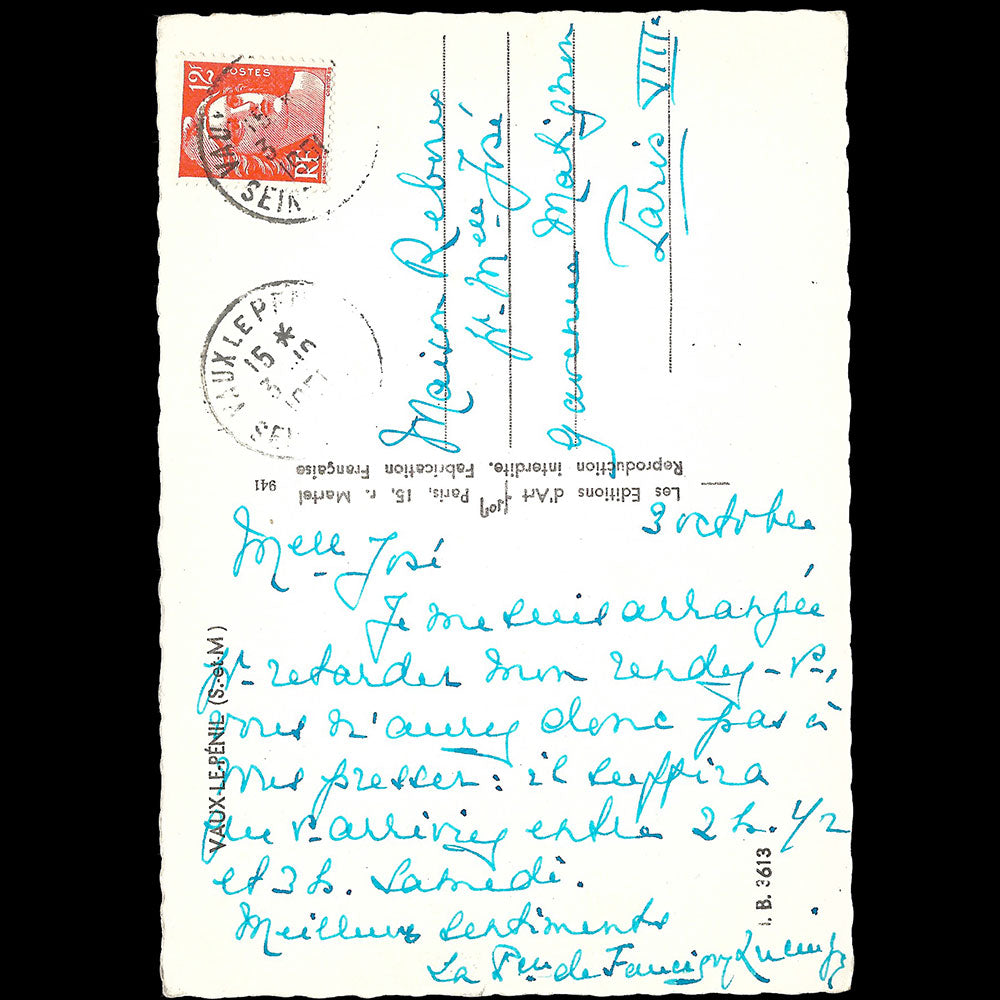 12F
POSTES
RF
VAUX
SEINE
15 *
3 - 10
VAUX LE PEN
15 *
3 - 10
SEI
Maison Reboux
Pr. Melle José
9 avenue Matignon
Paris VIIIe
Les Editions d'Art Yvon Paris, 15, r. Martel
Reproduction interdite. Fabrication Française
941
VAUX-LE-PÉNIL (S.-et-M)
I. B. 3613
3 octobre
Melle José
Je me suis arrangée
Pr. retarder mon rendez-v,
vous n'aurez donc pas à
vous presser : il suffira
que v. arriviez entre 2 h. 1/2
et 3 h. Samedi.
Meilleurs sentiments
La Pcesse de Faucigny Lucinge